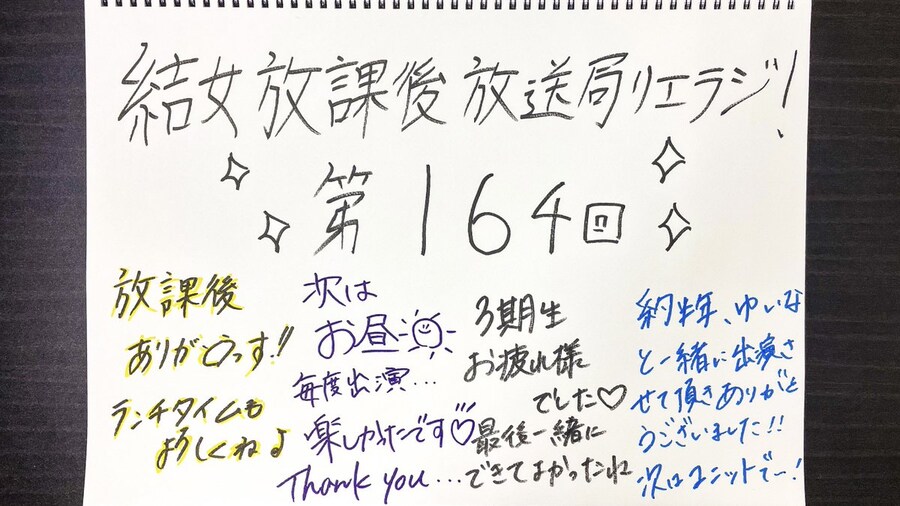 結女放課後放送局リエラジ!
第164回
放課後
ありがとうっす!!
ランチタイムも
よろしくねよ
次は
お昼
毎度出演...
楽しかったです♡
Thank you...
3期生
お疲れ様
でした♡
最後一緒に
できてよかったね
約半年、ゆいな
と一緒に出演さ
せて頂きありがと
うございました!!
次はユニットで〜!